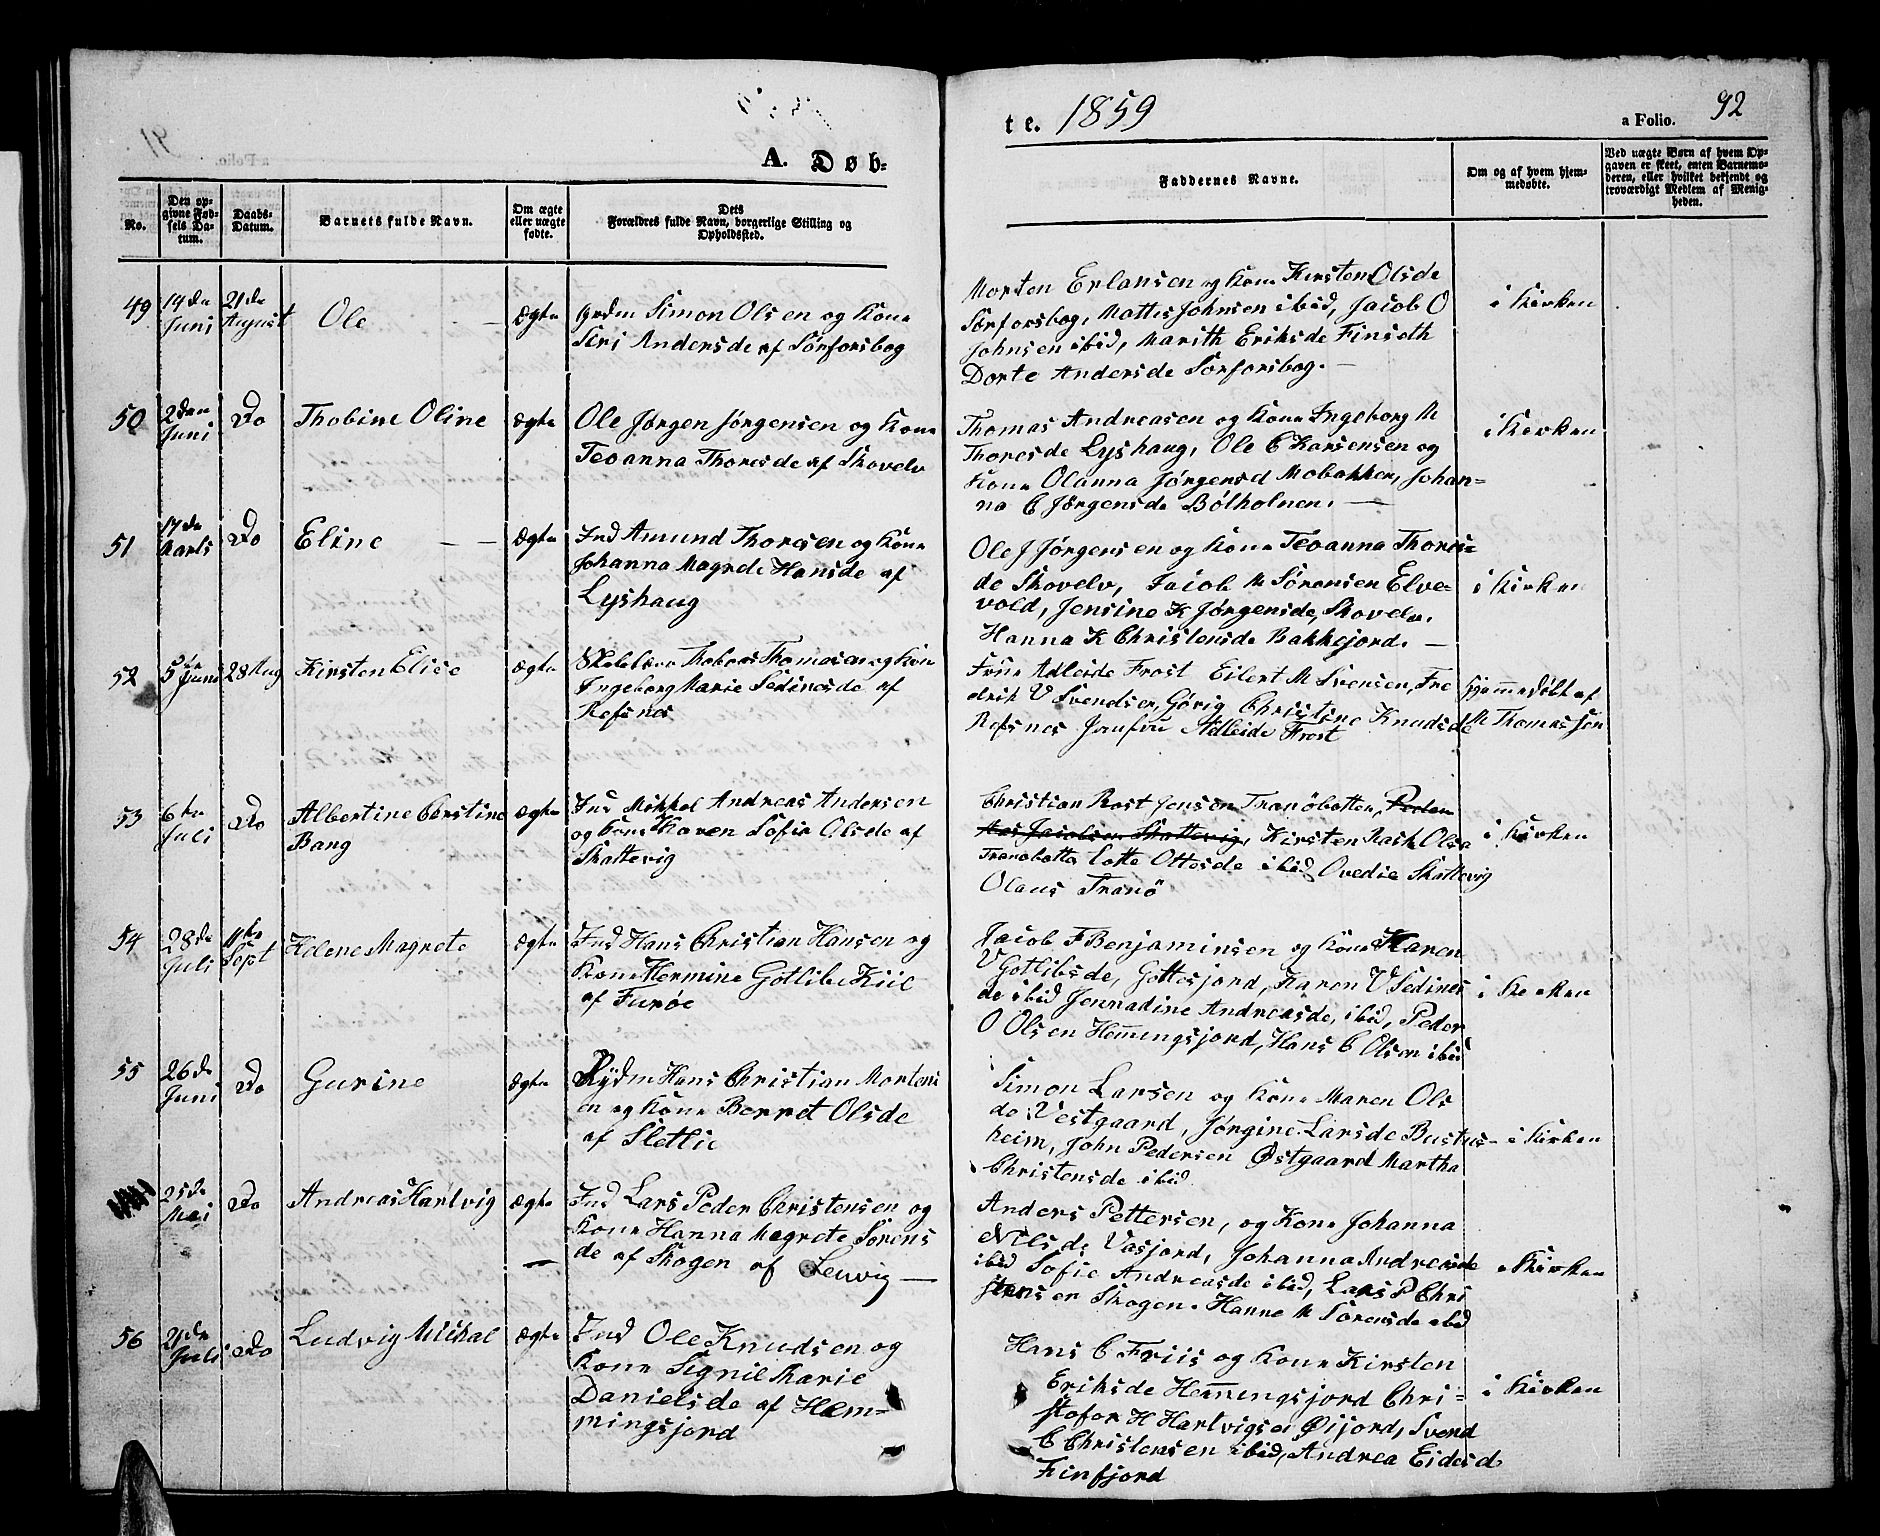 A. Døb-
No.
Den op-
givne Fød-
sels Da-
tum.
Daabs-
Datum.
Barnets fulde Navn.
Om ægte
eller uægte
fødte.
Dets
Forældres fulde Navn, borgerlige Stilling og
Opholdssted.
49
14de
Juni
21de
August
Ole
Ægte
Simon Olsen og Kone
Siri Andersde af Sørforsbog
50
2den
Juni
Do
Thobine Oline
Ægte
Ole Jørgen Jørgensen og Kone
Teoanna Thoresde af Skovelv
51
17de
Marts
Do
Eline
Ægte
Ind Amund Thoresen og Kone
Johanna Magrde Hansde af
Lyshaug
52
5te
Juni
28 Aug
Kirsten Elise
Ægte
Thobias Thomasen og Kone
Ingeborg Marie Sedinesde af
Refsnes
53
6te
Juli
Do
Albertine Cerstine
Bang
Ægte
Ind Mikkel Andreas Andersen
og Kone Karen Sofie Olsde af
Skattevig
54
28de
Juli
11te
Sept
Helene Magrete
Ægte
Ind Hans Christian Hansen og
Kone Hermine Gotlibe Kiil
af Furøe
55
26de
Juni
Do
Gurine
Ægte
Rydm Hans Christian Mortens
en og Kone Berret Olsde
af Sletlie
25de
Mai
Do
Andreas Hartvig
Ægte
Ind Lars Peder Christensen og
Kone Hanna Magrete Sørens
de af Skogen af Lervig
56
21de
Juli
Do
Ludvig Mikal
Ægte
Ind Ole Knudsen og
Kone Signil Marie
Danielsde af Hem-
mingsjord
te. 1859
a Folio. 92
Faddernes Navne.
Om og af hvem hjem-
medøbte.
Ved uægte Børn af hvem Op-
gaven er skeet, enten Barnemo-
deren, eller hvilket bekjendt og
troværdigt Medlem af Menig-
heden.
Morten Erlansen og Kone Kirsten Olsde
Sørforsbog, Mattis Johnsen ibid, Jacob O
Johnsen ibid, Marith Eriksde Finseth
Dorte Andersde Sørforsbog.
i Kirken
Thomas Andreasen og Kone Ingeborg M
Thoresde Lyshaug, Ole C Karsensen og
Kone Olanna Jørgensd Mobakken, Johan-
na C Jørgensde Bølholnen.
i Kirken
Ole J Jørgensen og Kone Teoanna Thores-
de Skovelv, Jacob M Sørensen Elve-
vold, Jensine K Jørgensde, Skovelv.
Hanna K Christensde Bakkejord.
i Kirken
Frue Adleide Frost Eilert M Svensen, Fre
drik V Svendsen, Gørig Christine Knudsd
Refsnes Jomfru Adleide Frost
hjemmedøbt af
M Thomassen
Christian Rost Jensen Tranøbotten, Peder
Jacobsen Skattevig, Kirsten Rask Olsd
Tranøbotten Lotte Ottesde ibid Ovedie Skattevig
Olaus Tranö
i Kirken
Jacob F Benjaminsen og Kone Karen
V Gotlibsde, Gottesjord, Karen V Sedines
de ibid Jennadine Andreasde, ibid, Peder
O Olsen Hemmingsjord, Hans C Olsen ibid
i Kirken
Simon Larsen og Kone Maren Ols
de Vestgaard, Jørgine Larsde Bustus-
heim, John Pedersen Østgaard Martha
Christensde ibid
i Kirken
Anders Pettersen, og Kone Johanna
Nilsde Vasjord, Johanna Andreasde
ibid Sofie Andreasde ibid, Lars P Chri
stensen Skogen. Hanne M Sørensde ibid
i Kirken
Hans C Friis og Kone Kirsten
Eriksde Hemmingsjord Chri-
stofer H Hartvigsen Øijord, Svend
C Christensen ibid, Andrea Eidesd
Finfjord
i Kirken